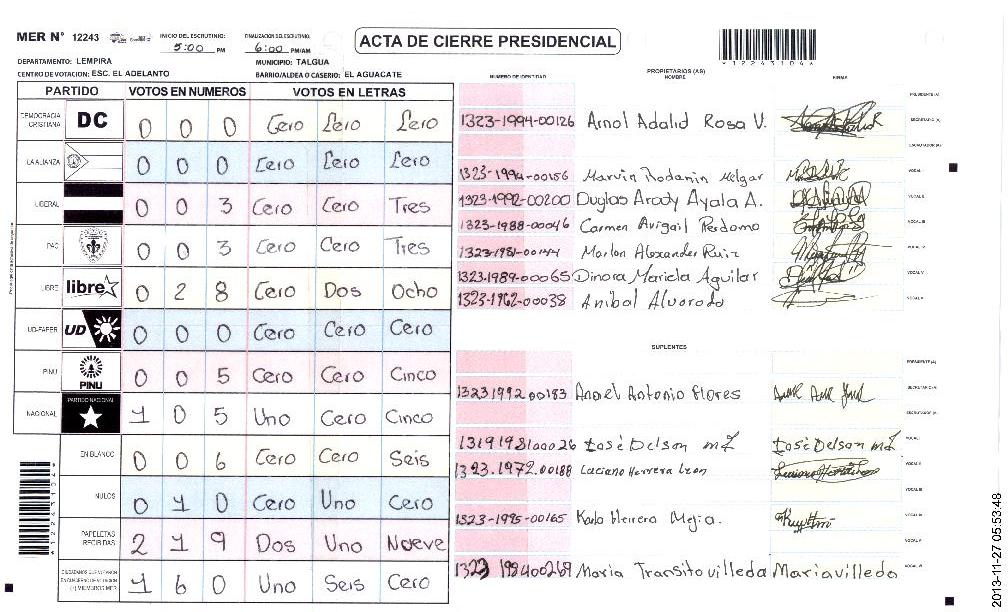 MER N° 12243 INICIO DEL ESCRUTINIO: 5:00 PM FINALIZACION DEL ESCRUTINIO: 6:00 PM/AM
ACTA DE CIERRE PRESIDENCIAL
DEPARTAMENTO: LEMPIRA MUNICIPIO: TALGUA
CENTRO DE VOTACION: ESC. EL ADELANTO BARRIO/ALDEA O CASERIO: EL AGUACATE
PARTIDO VOTOS EN NUMEROS VOTOS EN LETRAS
DEMOCRACIA CRISTIANA DC 0 0 0 Cero Cero Cero
LA ALIANZA 0 0 0 Cero Cero Cero
LIBERAL 0 0 3 Cero Cero Tres
PAC 0 0 3 Cero Cero Tres
LIBRE libre 0 2 8 Cero Dos Ocho
UD-FAPER UD 0 0 0 Cero Cero Cero
PINU PINU 0 0 5 Cero Cero Cinco
NACIONAL PARTIDO NACIONAL 1 0 5 Uno Cero Cinco
EN BLANCO 0 0 6 Cero Cero Seis
NULOS 0 1 0 Cero Uno Cero
PAPELETAS RECIBIDAS 2 1 9 Dos Uno Nueve
CIUDADANOS QUE VOTARON EN CUADERNO DE VOTACION (+) MIEMBROS MER 1 6 0 Uno Seis Cero
NUMERO DE IDENTIDAD PROPIETARIOS (AS) NOMBRE FIRMA
PRESIDENTE (A)
1323-1994-00126 Arnol Adalid Rosa V. SECRETARIO (A)
ESCRUTADOR (A)
1323-1994-00156 Marvin Rodanin Melgar VOCAL I
1323-1992-00200 Duglas Arody Ayala A. VOCAL II
1323-1988-00046 Carmen Avigail Perdomo VOCAL III
1323-1981-00144 Marlon Alexander Ruiz VOCAL IV
1323-1989-00065 Dinora Mariela Aguilar VOCAL V
1323-1962-00038 Anibal Alvorodo VOCAL VI
SUPLENTES
PRESIDENTE (A)
1323 1992 00183 Angel Antonio Flores SECRETARIO (A)
ESCRUTADOR (A)
1319198100026 José Delson mz José Delson mz VOCAL I
1323.1972.00188 Luciano Herrera Leon VOCAL II
VOCAL III
1323-1995-00165 Karla Herrera Mejia. VOCAL IV
VOCAL V
1323 198400269 Maria Transito villeda Maria villeda VOCAL VI
2013-11-27 05:53:48